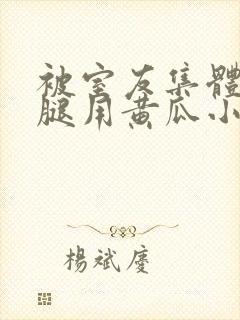 被室友集體
腿用黄瓜小
楊斌慶